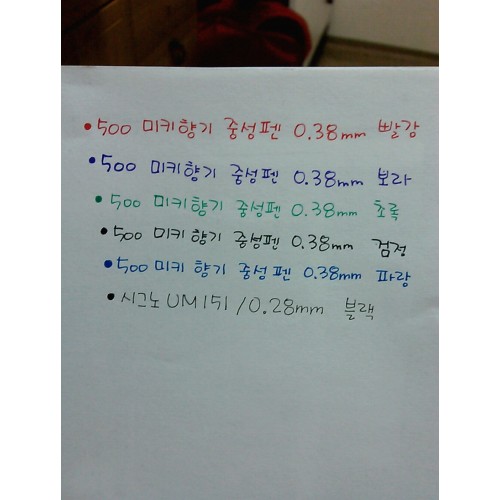 • 500 미키향기 중성펜 0.38mm 빨강
• 500 미키향기 중성펜 0.38mm 보라
• 500 미키향기 중성펜 0.38mm 초록
• 500 미키향기 중성펜 0.38mm 검정
• 500 미키향기 중성펜 0.38mm 파랑
• 시그노 UM151/0.28mm 블랙